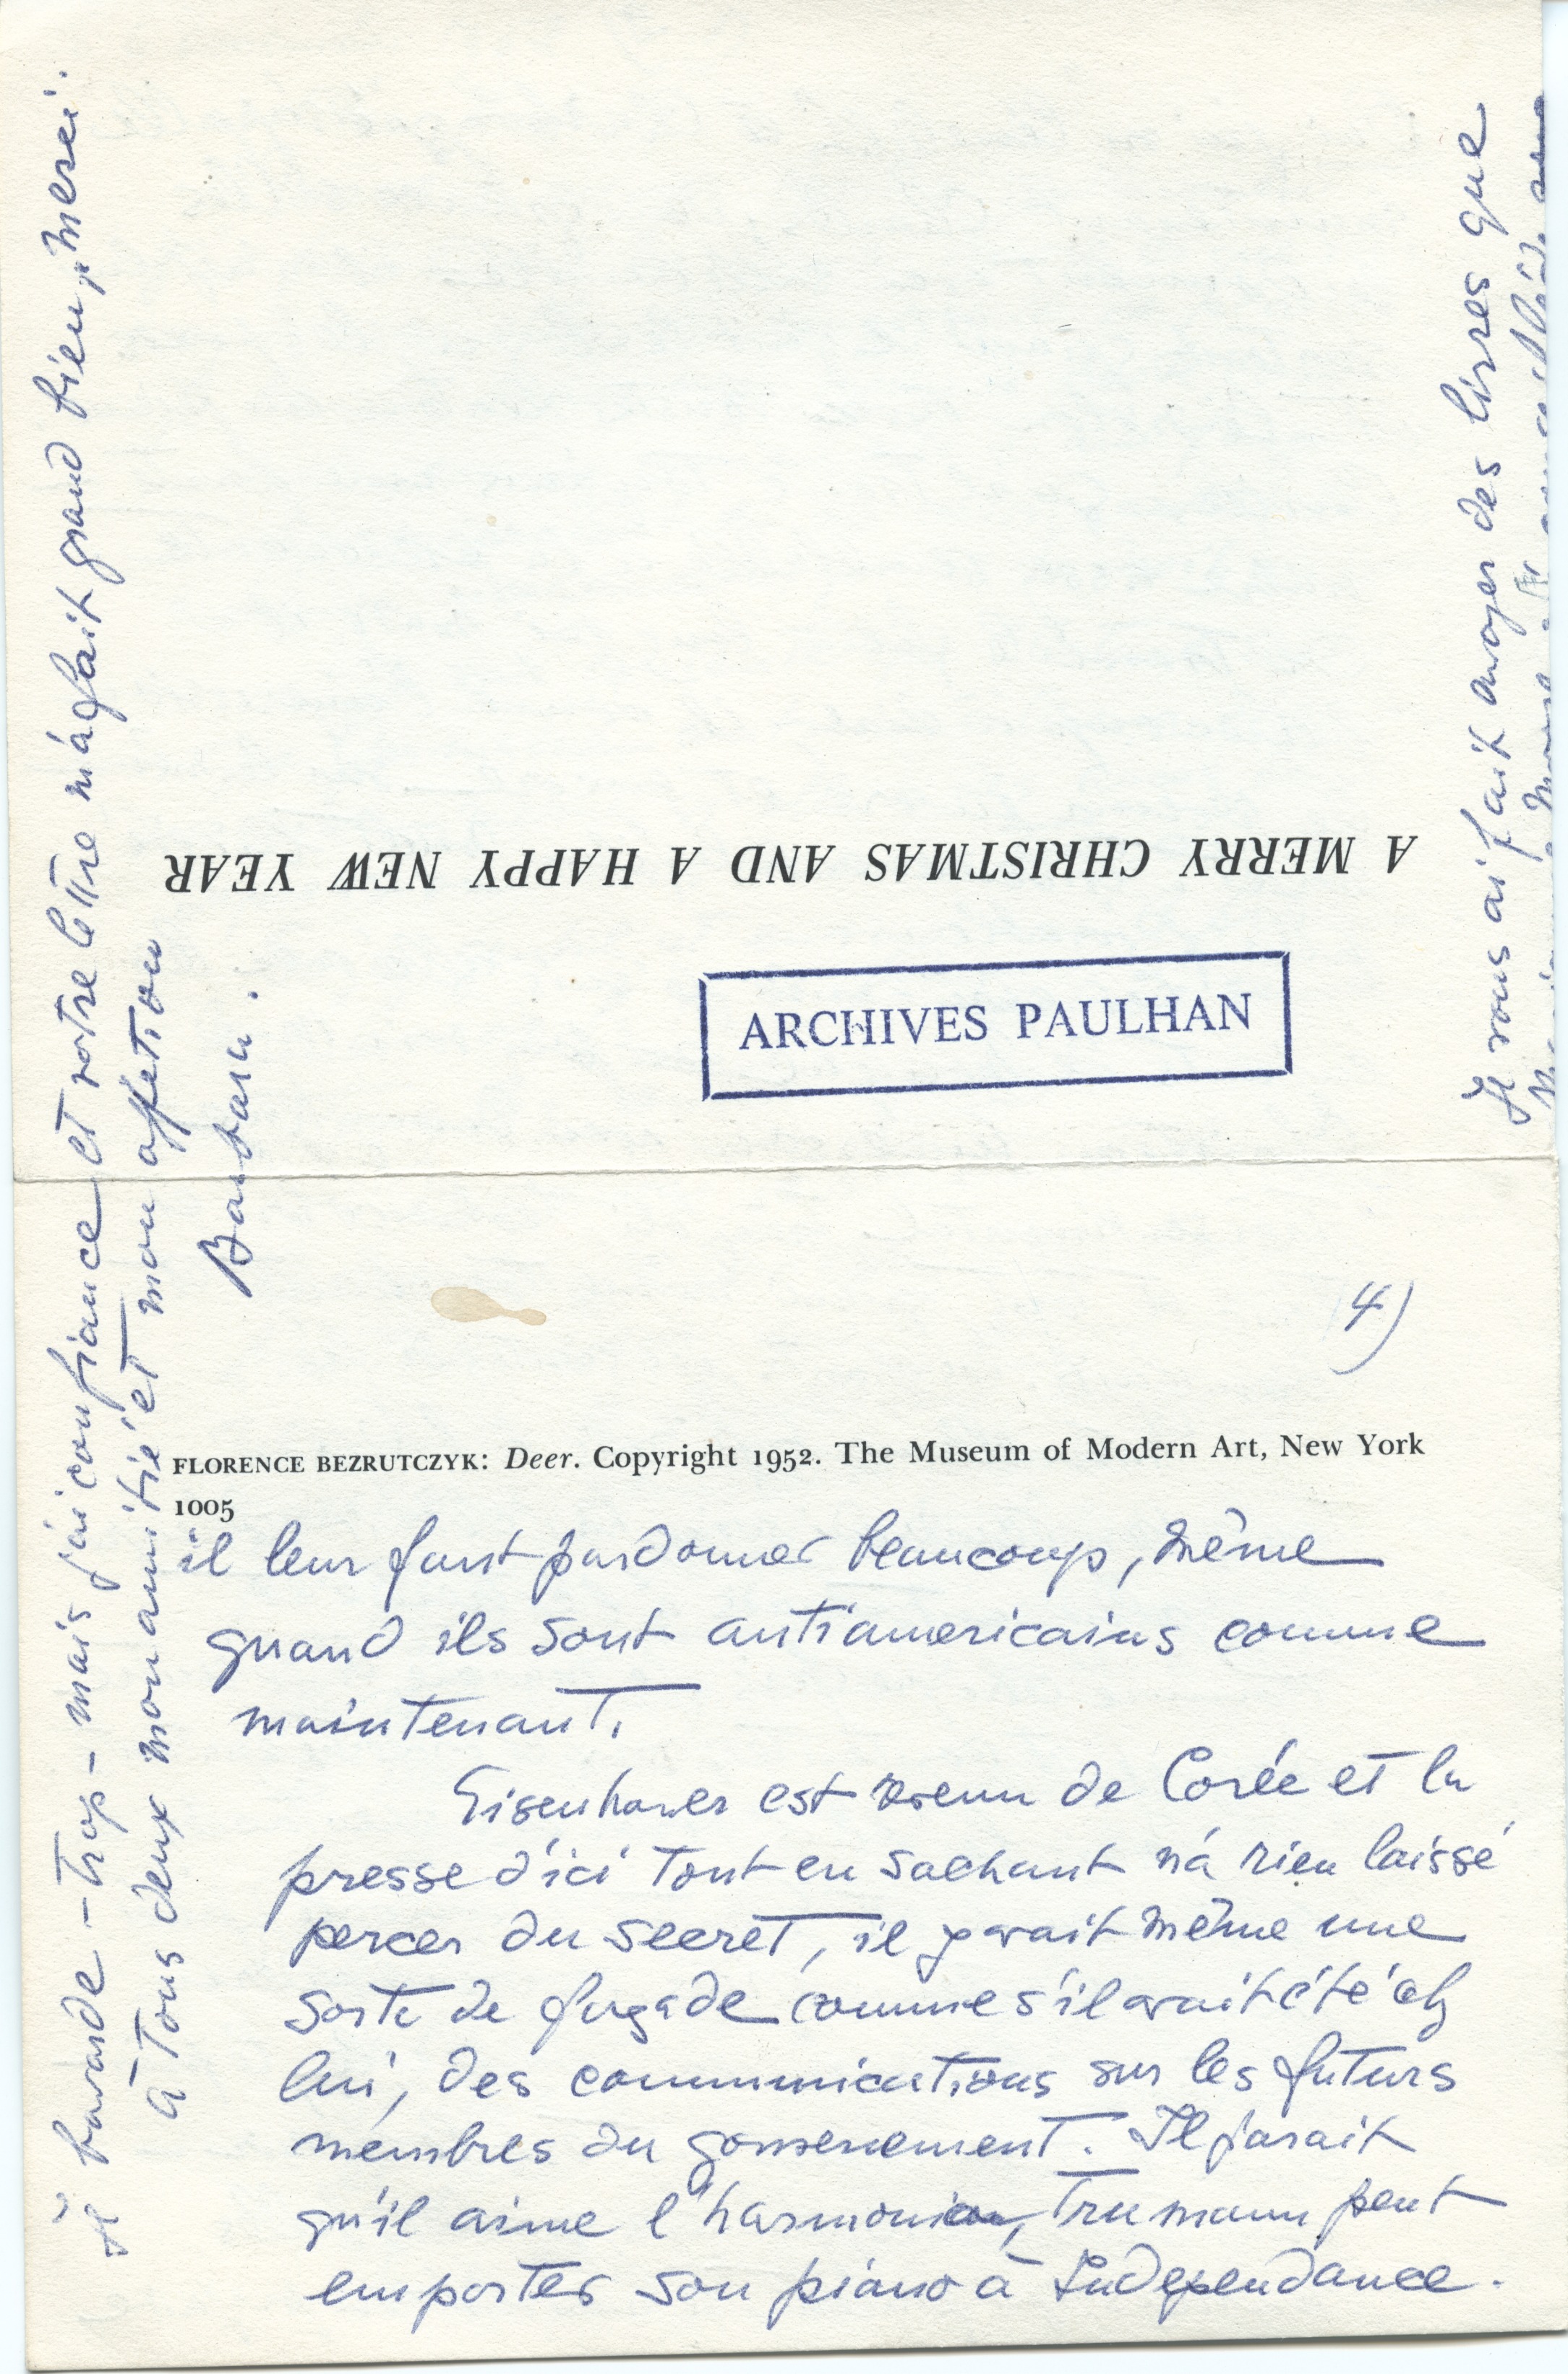 4)
FLORENCE BEZRUTCZYK: Deer. Copyright 1952. The Museum of Modern Art, New York
1005
il leur faut pardonner beaucoup, même
quand ils sont antiamericains comme
maintenant.
Eisenhower est revenu de Corée et la
presse d'ici tout en sachant n'a rien laissé
percer du secret, il y avait même une
sorte de façade comme s'il avait été chz
lui, des communications sur les futurs
membres du gouvernement. Il parait
qu'il aime l'harmonica, Trumann peut
emporter son piano à Independance.
Je bavarde - trop - mais j'ai confiance et votre lettre m'a fait grand bien, merci.
à Tous deux mon amitié et mon affetion
Barbara.
A MERRY CHRISTMAS AND A HAPPY NEW YEAR
ARCHIVES PAULHAN
Je vous ai fait avoyer des livres que